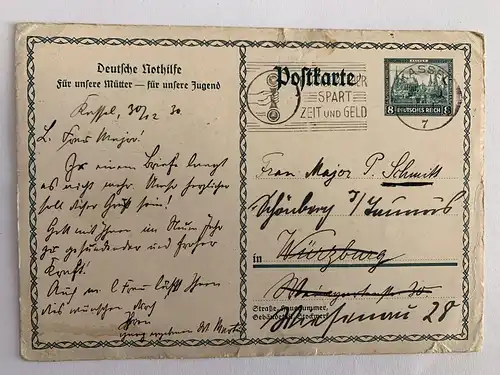 Deutsche Nothilfe
Für unsere Mütter — für unsere Jugend
Kassel, 30/12 30
L. Frau Major!
Zu einem Briefe langt
es nicht mehr. Umso herzlicher
soll dieser Gruß sein!
Gott mit Ihnen im Neuen Jahr
zu gesundender und froher
Kraft!
Auch m. l. Frau läßt Ihnen
das wünschen
Ihren
Postkarte
SPART
ZEIT UND GELD
KASSEL
7
8 DEUTSCHES REICH 8
Frau Major P. Schmitt
Schönberg i/Taunus
in Würzburg
Straße, Hausnummer,
Gebäudeteil, Stockwerk
Wiesenau 28